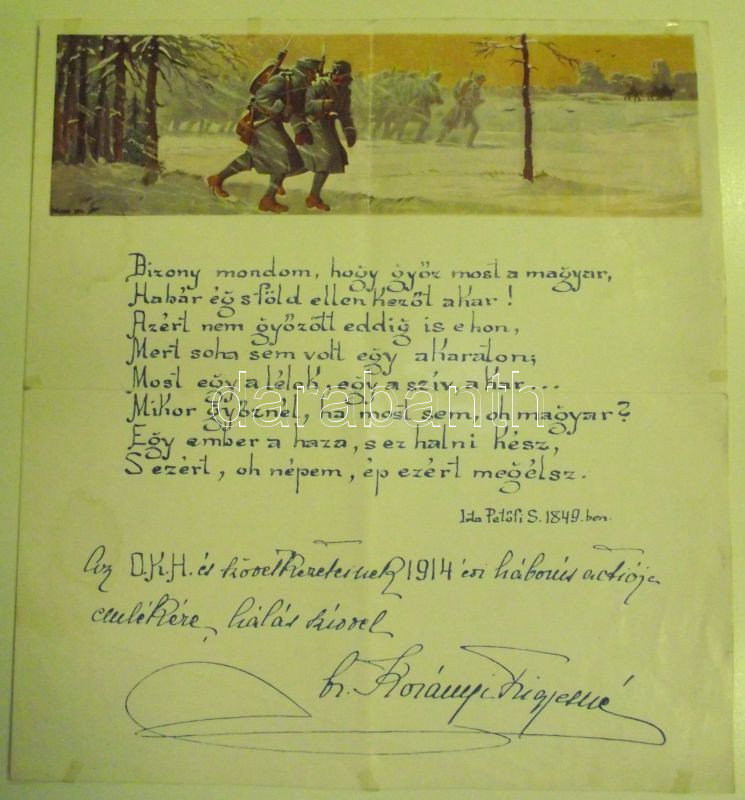 Bizony mondom, hogy győz most a magyar,
Habár ég s föld ellenkezőt akar!
Azért nem győzött eddig is e hon,
Mert soha sem volt egy akaraton;
Most egy a lélek, egy a szív, a kar...
darabanth
Mikor győznél, ha most sem, oh magyar?
Egy ember a haza, s ez halni kész,
S ezért, oh népem, ép ezért megélsz.
Irta Petőfi S. 1849.ben.
Az O.K.H. és következteinek 1914 évi háborús actiója
emlékére, hálás szívvel
br. Korányi Frigyesné